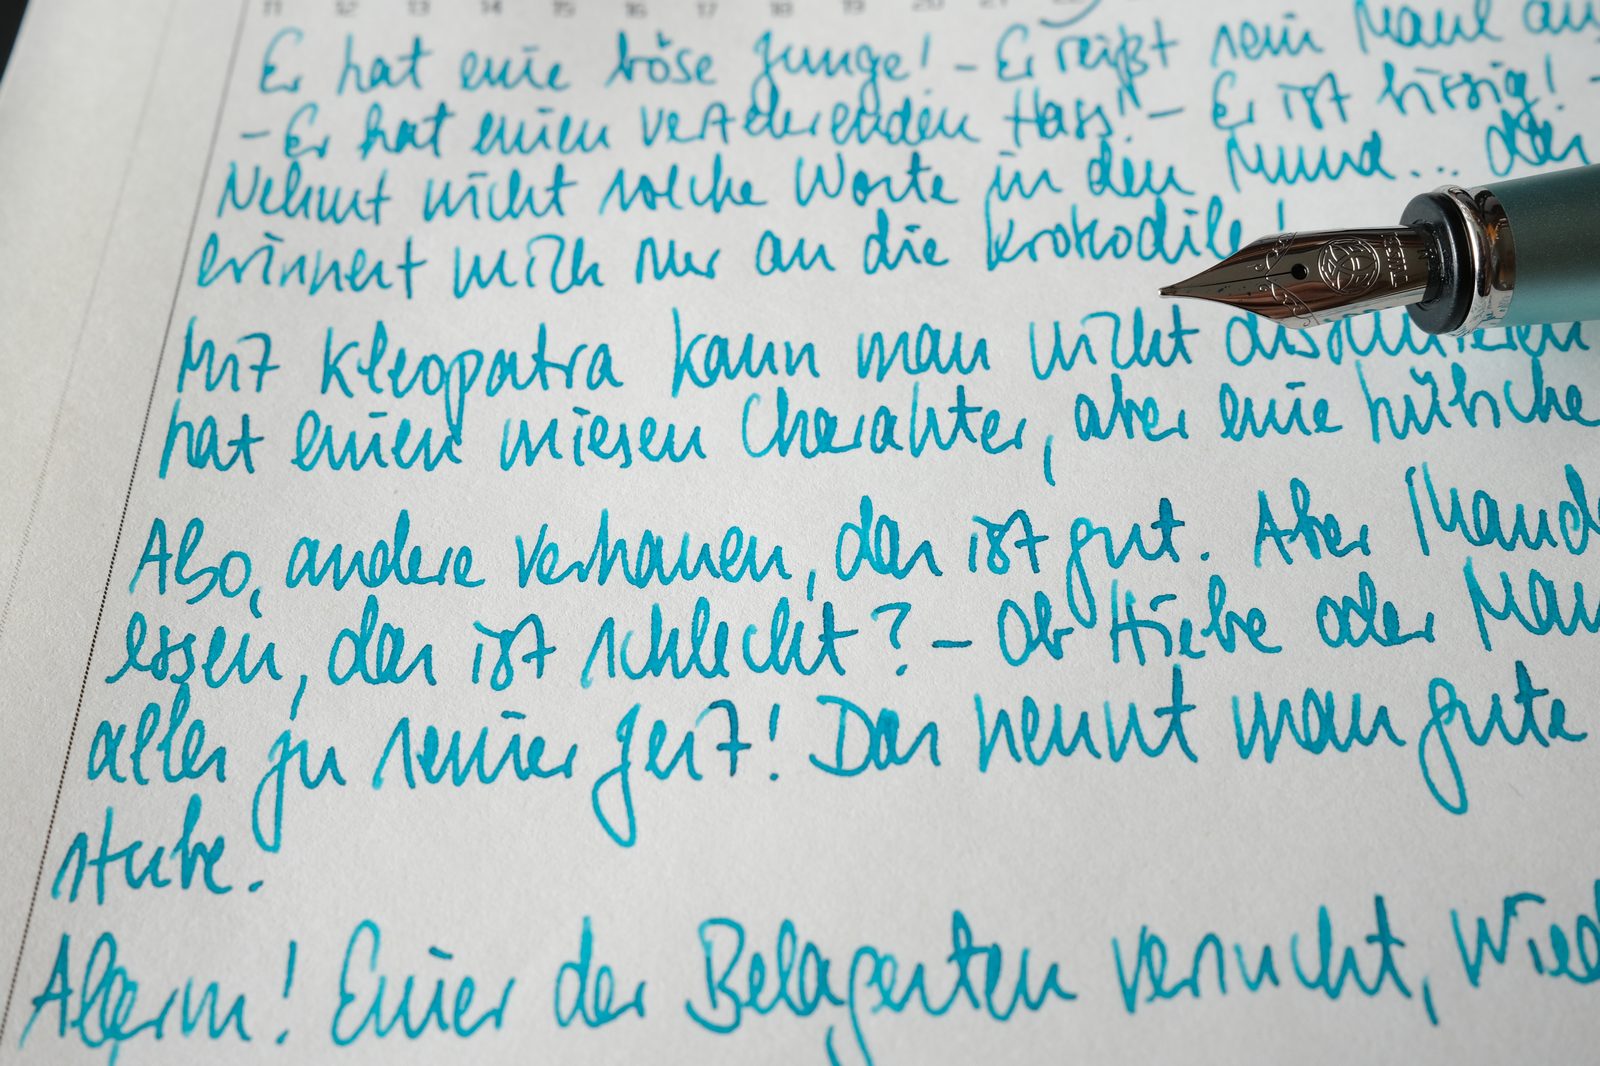 11 12 13 14 15 16 17 18 19 20 21 22
Er hat eine böse Zunge! – Er reißt sein Maul au
– Er hat einen verzehrenden Hass! – Er ist bissig! –
Nehmt nicht solche Worte in den Mund... das
erinnert mich nur an die Krokodile!
Mit Kleopatra kann man nicht diskutieren
hat einen miesen Charakter, aber eine hübsche
Also, andere verhauen, das ist gut. Aber Mand
essen, das ist schlecht? – Ob Hiebe oder Man
alles zu seiner Zeit! Das nennt man gute
stube.
Alarm! Einer der Belagerten versucht, Wied